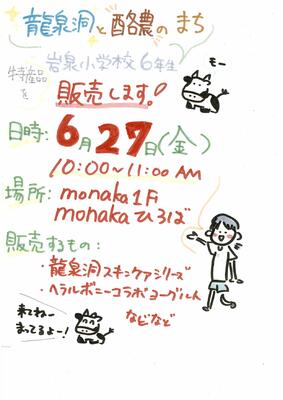 龍泉洞と酪農のまち
岩泉小学校6年生
特産品を
モー
販売します!
日時:6月27日(金)
10:00~11:00 AM
場所:monaka 1F
monakaひろば
販売するもの:
・龍泉洞スキンケアシリーズ
・ヘラルボニーコラボヨーグルト
などなど
来てねー
まってるよー!